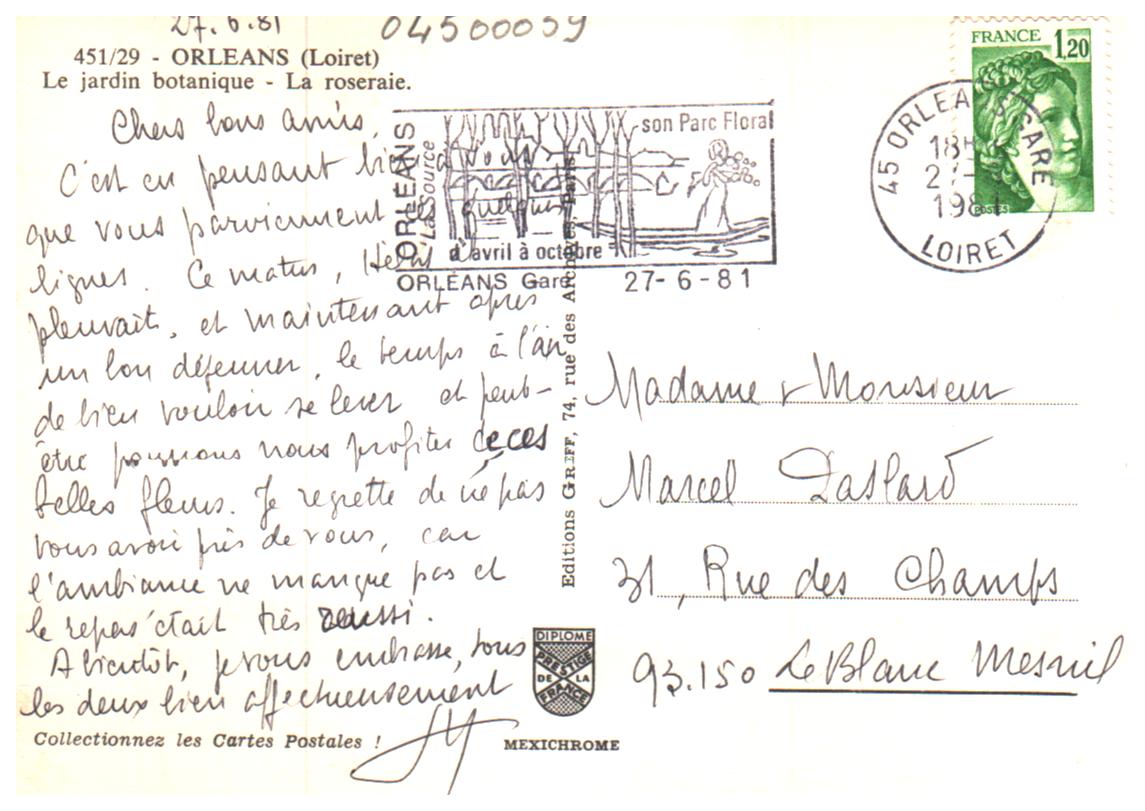 27.6.81
04500059
451/29 - ORLEANS (Loiret)
Le jardin botanique - La roseraie.
Chers bons amis,
C'est en pensant bien à vous
que vous parviennent ces quelques
lignes. Ce matin, Hélas il
pleuvait, et maintenant après
un bon déjeuner, le temps à l'air
de bien vouloir se lever et peut-
être pourrons nous profiter de ces
belles fleurs. Je regrette de ne pas
vous avoir près de vous, car
l'ambiance ne manque pas et
le repas était très réussi.
A bientôt, je vous embrasse, tous
les deux bien affectueusement
Collectionnez les Cartes Postales !
ORLÉANS
La Source
son Parc Floral
d'avril à octobre
ORLÉANS Gare 27-6-81
Editions GREFF, 74, rue des Archives, Paris
DIPLOME
PRESTIGE
DE LA
FRANCE
MEXICHROME
FRANCE 1,20
POSTES
45 ORLEANS GARE
18H
27-
198
LOIRET
Madame & Monsieur
Marcel
31, Rue des Champs
93.150 Le Blanc Mesnil